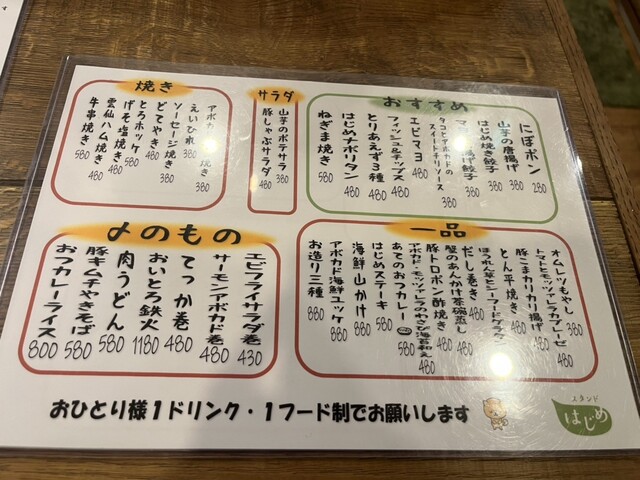 おすすめ
にぼポン 280
山芋の唐揚げ 380
はじめ焼き餃子 380
揚げ餃子 380
タコとアボカドの
スイートチリソース 380
エビマヨ 480
フィッシュ&チップス 480
とりあえず3種 480
はじめナポリタン 480
ねぎま焼き 580
サラダ
山芋のポテサラ 380
豚しゃぶサラダ 480
焼き
アボカ 焼き 380
えいひれ 380
ソーセージ焼き 380
どてやき 480
とろホッケ 480
げそ塩焼き 480
雲仙ハム焼き 480
牛串焼き 580
一品
オムレツもやし 380
トマトとモッツァレラカプレーゼ 480
豚こまカリカリ揚げ 480
とん平焼き 480
ほうれん草とシーフードグラタン 480
だし巻き 480
蟹のあんかけ茶碗蒸し 480
豚トロポン酢焼き 480
アボカド・モッツァレラのわさび海苔和え 480
あてのおつカレー 580
はじめステーキ 880
海鮮山かけ 880
アボカド海鮮ユッケ 880
お造り三種 880
〆のもの
エビフライサラダ巻 430
サーモンアボカド巻 480
てっか巻 480
おいとろ鉄火 1180
肉うどん 580
豚キムチやきそば 580
おつカレーライス 800
おひとり様1ドリンク・1フード制でお願いします
スタンド
はじめ